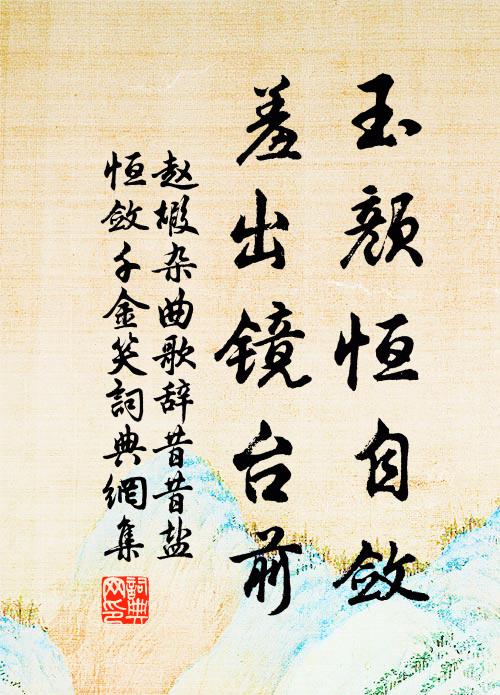 玉颜恒自敛
羞出镜台前
赵嘏杂曲歌辞昔昔盐
恒敛千金笑詞典網集
詞典網印